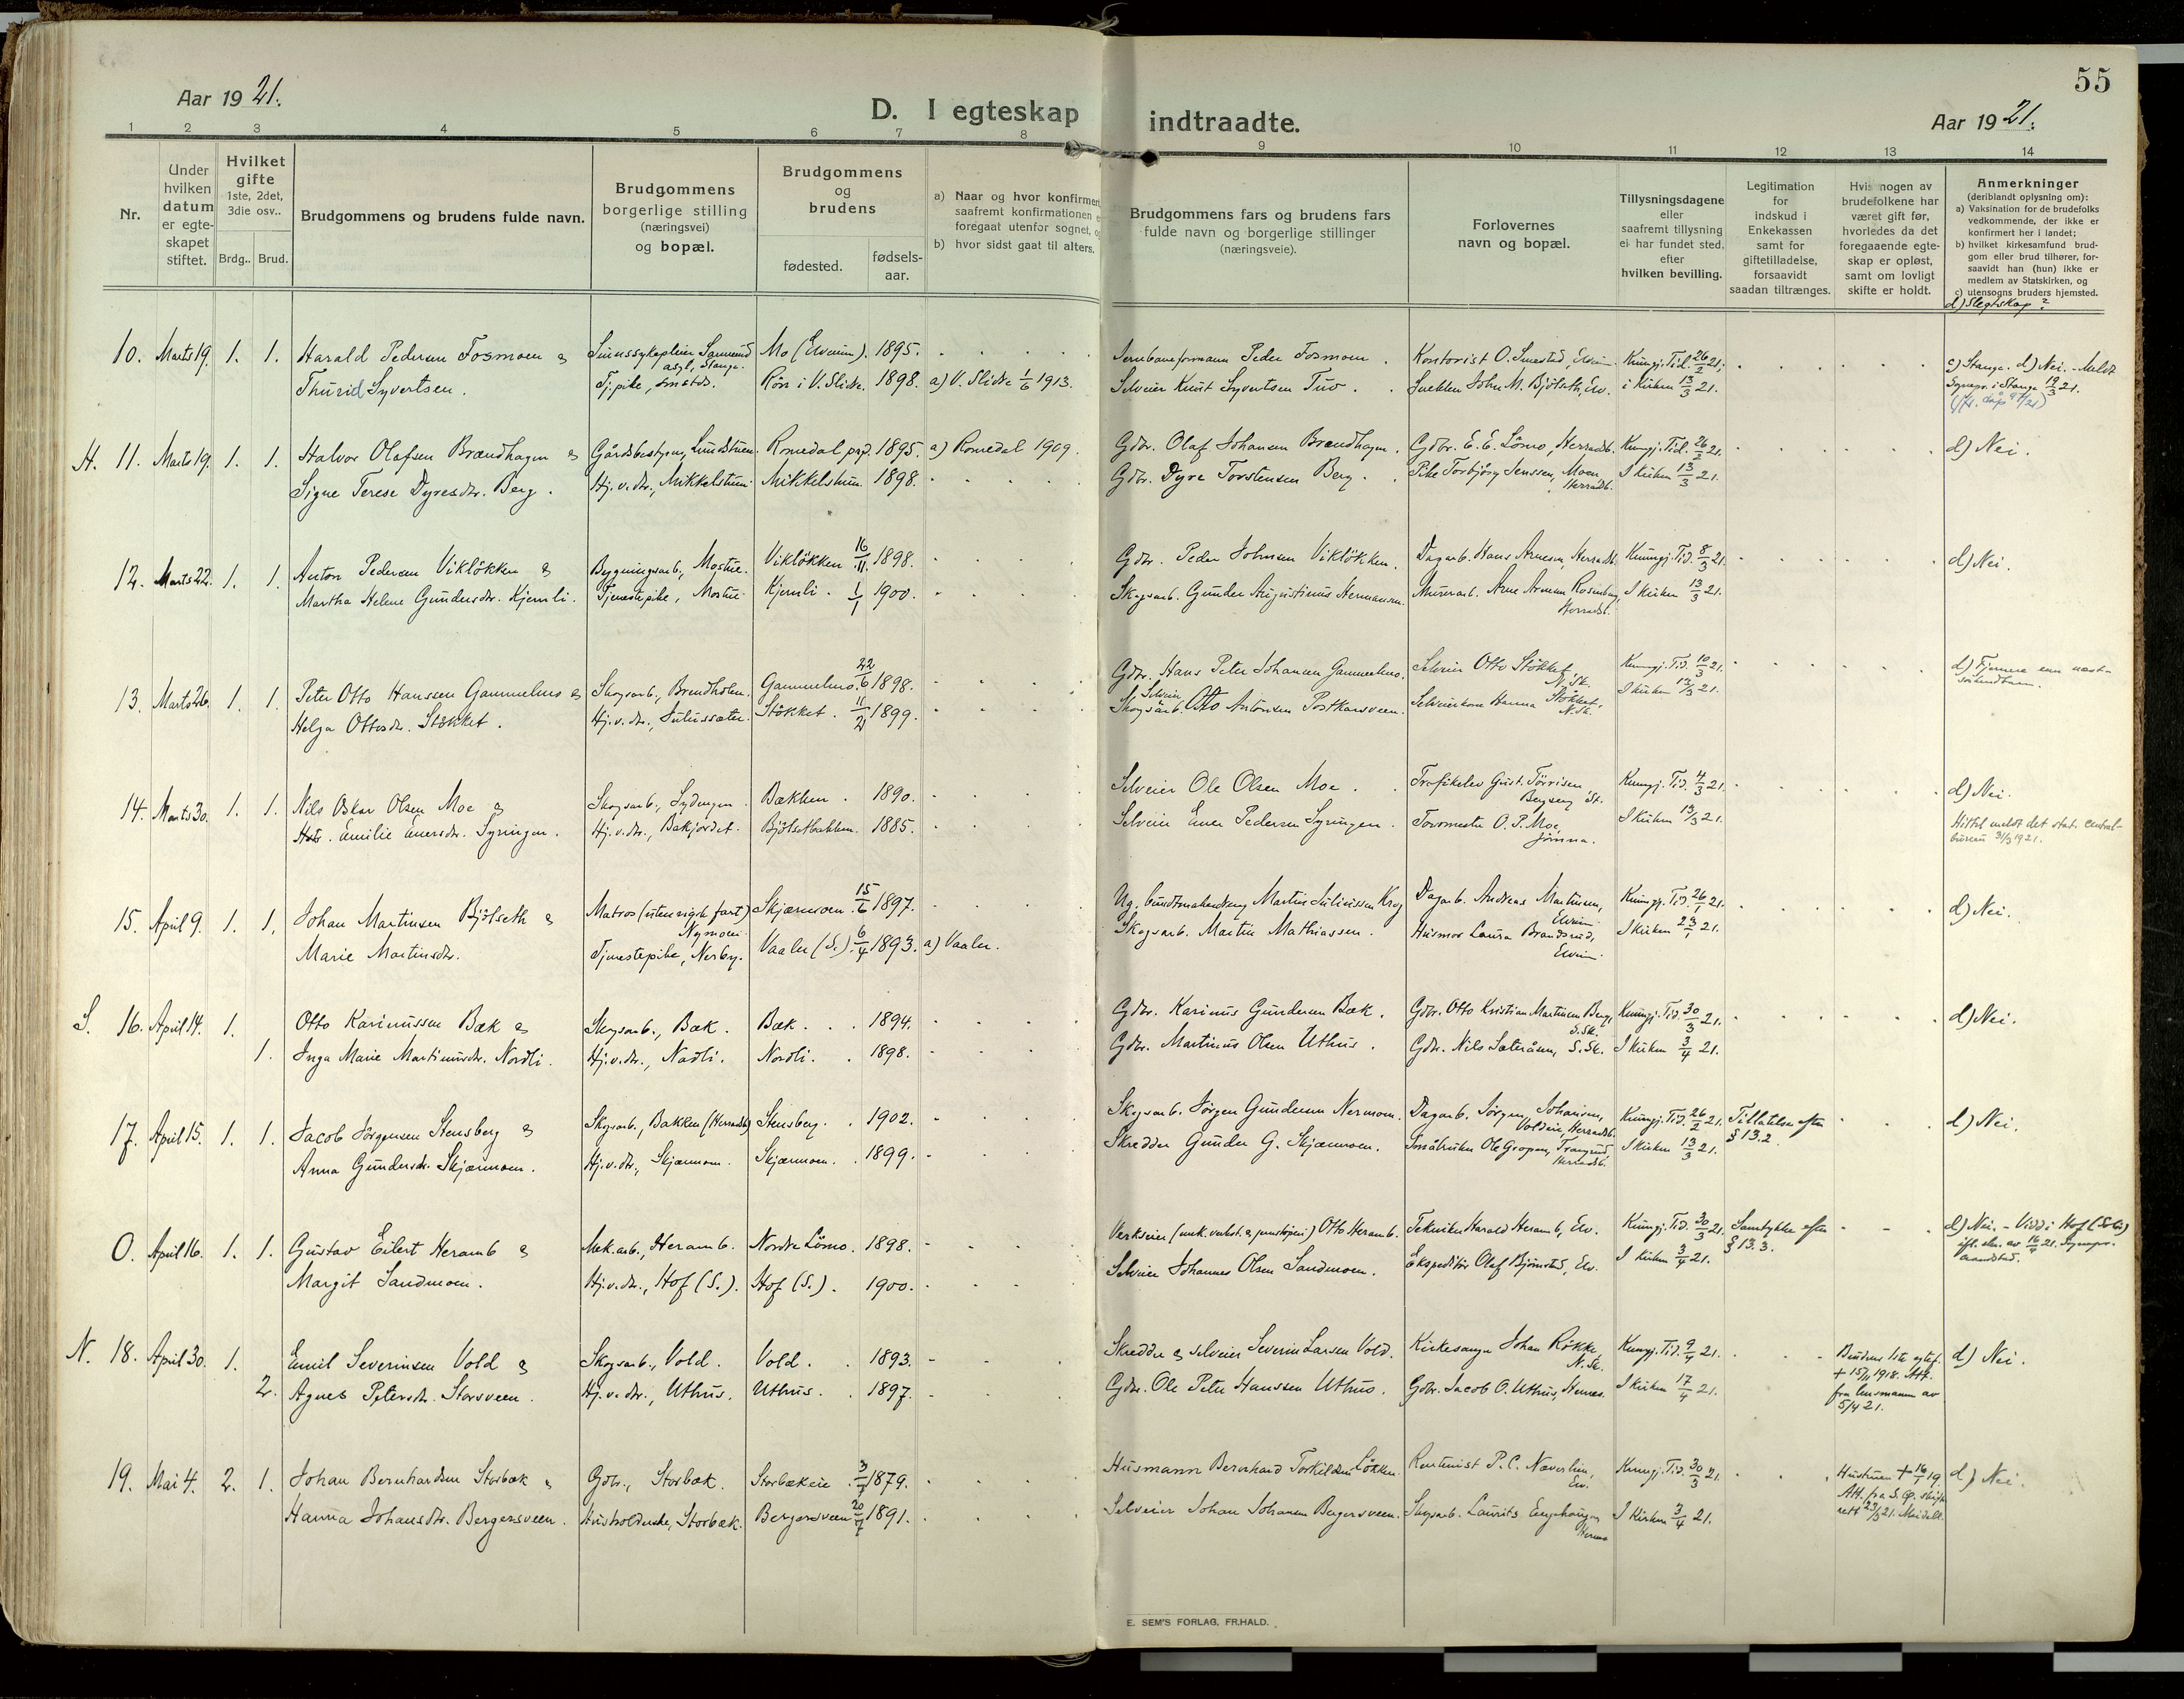 55
Aar 1921.
D. I egteskap indtraadte.
Aar 1921.
1 2 3 4 5 6 7 8 9 10 11 12 13 14
Nr.
Under hvilken datum er egteskapet stiftet.
Hvilket gifte 1ste, 2det, 3die osv..
Brdg.. Brud.
Brudgommens og brudens fulde navn.
Brudgommens borgerlige stilling (næringsvei) og bopæl.
Brudgommens og brudens
fødested.
fødsels-aar.
a) Naar og hvor konfirmert saafremt konfirmationen foregaat utenfor sognet,
b) hvor sidst gaat til alters.
Brudgommens fars og brudens fars fulde navn og borgerlige stillinger (næringsveie).
Forlovernes navn og bopæl.
Tillysningsdagene eller saafremt tillysning ei har fundet sted, efter hvilken bevilling.
Legitimation for indskud i Enkekassen samt for giftetilladelse, forsaavidt saadan tiltrænges.
Hvis nogen av brudefolkene har været gift før, hvorledes da det foregaaende egteskap er opløst, samt om lovligt skifte er holdt.
Anmerkninger
(deriblandt oplysning om):
a) Vaksination for de brudefolks vedkommende, der ikke er konfirmert her i landet;
b) hvilket kirkesamfund brudgom eller brud tilhører, forsaavidt han (hun) ikke er medlem av Statskirken, og
c) utensogns bruders hjemsted.
d) Slegtskap?
10. Marts 19. 1. 1. Harald Pedersen Fosmoen & Mo (Elverum). 1895. Jernbaneformann Peder Fosmoen. Kontorist O. Smestad, Elverum Kungj. Tid. 26/2 21. c) Stange. d) Nei. - Meldt
Thurid Syvertsen. Tj.pike, smstds. Røn i V. Slidre. 1898. a) V. Slidre 1/6 1913. Selveier Knut Syvertsen Tuv. Snekker John M. Bjölseth, Elv. i Kirken 13/3 21. Sognepr. i Stange 19/3 21.
H. 11. Marts 19. 1. 1. Halvor Olafsen Brændhagen & Gårdsbestyrer, Lundstuen. Romedal prgj. 1895. a) Romedal 1909. Gdbr. Olaf Johansen Brændhagen. Gdbr. E. E. Lömo, Herradsb. Kungj. Tid. 26/2 21. d) Nei.
Signe Terese Dyresdtr. Berg. Hj.v.dtr., Mikkelstun. Mikkelstun. 1898. Gdbr. Dyre Torstensen Berg. Pike Torbjörg Jenssen, Moen, Herradsb. I Kirken 13/3 21.
12. Marts 22. 1. 1. Anton Pedersen Viklökken & Bygningsarb., Mostue. Viklökken 16/11 1898. Gdbr. Peder Johnsen Viklökken. Dagarb. Hans Arnesen, Herradsb. Kungj. Tid. 8/3 21. d) Nei.
Martha Helene Gundersdtr. Kjernli. Tjenestepike, Mostue. Kjernli. 1/1 1900. Skogsarb. Gunder Augustinus Hermansen. Murerarb. Arne Arnesen Rosenberg, Herradsb. I Kirken 13/3 21.
13. Marts 26. 1. 1. Peter Otto Hanssen Gammelmo & Skogsarb., Brendholen. Gammelmo. 22/6 1898. Gdbr. Hans Peter Johansen Gammelmo. Selveier Otto Stökket, N. Sk. Kungj. Tid. 10/3 21.
Helga Ottosdtr. Stökket. Hj.v.dtr., Juliussæter. Stökket. 11/2 1899. Selveier Skogsarb. Otto Antonsen Postkarsveen. Selveierkone Hanna Stökket, N. Sk. I Kirken 13/3 21.
14. Marts 30. 1. 1. Nils Oskar Olsen Moe & Skogsarb., Sydengen. Bækken. 1890. Selveier Ole Olsen Moe. Kungj. Tid. 4/3 21. d) Nei.
Emilie Enersdtr. Syringen. Hj.v.dtr., Bakjordet. Bjölsetbakken. 1885. Selveier Ener Pedersen Syringen. Tømmester O. P. Moe, Jömna. I Kirken 13/3 21. Hittil meldt det stat. centralbureau 31/3 1921.
15. April 9. 1. 1. Johan Martinsen Bjölseth & Matros (utenrigsk fart) Nymoen. Skjærmoen. 15/6 1897. Martin Juliussen Dagarb. Andreas Martinsen, Elverum Kungj. Tid. 26/1 21. d) Nei.
Marie Martinsdtr. Tjenestepike, Nerby. Vaaler (S.). 6/4 1893. a) Vaaler. Skogsarb. Martin Mathiassen. Husmor Laura Brandsrud, Elverum. I Kirken 23/1 21.
S. 16. April 14. 1. Otto Karinussen Bæk & Skogsarb., Bæk. Bæk. 1894. Gdbr. Karinus Gundersen Bæk. Gdbr. Otto Kristian Martinsen Berg, S. Sk. Kungj. Tid. 30/3 21. d) Nei.
1. Inga Marie Martinusdtr. Nordli. Hj.v.dtr., Nordli. Nordli. 1898. Gdbr. Martinus Olsen Uthus. Gdbr. Nils Sæteråsen, S. Sk. I Kirken 3/4 21.
17. April 15. 1. 1. Jacob Jörgensen Stensberg & Skogsarb., Bakken (Herradsb) Stensberg. 1902. Skogsarb. Jörgen Gundersen Nermoen. Dagarb. Jörgen Johansen, Volden, Herradsb. Kungj. Tid. 26/2 21. Tillatelse efter § 13.2. d) Nei.
Anna Gundersdtr. Skjærmoen. Hj.v.dtr., Skjærmoen. Skjærmoen. 1899. Skredder Gunder G. Skjærmoen. Småbruker Ole Gropen, Herradsb. I Kirken 13/3 21.
O. April 16. 1. 1. Gustav Eilert Heramb & Mek.arb., Heramb. Nordre Lömo. 1898. Verkseier (mek. verkst. & jernstöperi) Otto Heramb. Tekniker Harald Heramb, Elv. Kungj. Tid. 30/3 21. Samtykke efter § 13.3. d) Nei. - Viet i Hof (Solör)
Margit Sandmoen. Hj.v.dtr., Hof (S.). Hof (S.). 1900. Selveier Johannes Olsen Sandmoen. Ekspeditör Olaf Björnstad, Elv. I Kirken 3/4 21.
N. 18. April 30. 1. Emil Severinsen Vold & Skogsarb., Vold. Vold. 1893. Skredder & selveier Severin Larsen Vold. Kirkesanger Johan Rökke, N. Sk. Kungj. Tid. 9/4 21. Brudens 1ste egtef. + 15/11 1918. Att. fra lensmann av 5/4 21. d) Nei.
2. Agnes Petersdtr. Storsveen. Hj.v.dtr., Uthus. Uthus. 1897. Gdbr. Ole Peter Hanssen Uthus. Gdbr. Jacob O. Uthus, Hernes. I Kirken 17/4 21.
19. Mai 4. 2. 1. Johan Bernhardsen Storbæk & Gdbr., Storbæk. Storbækeie. 3/7 1879. Husmann Bernhard Torkildsen Lökken. Rentenist P. C. Næverlien, Elv. Kungj. Tid. 30/3 21. Hustruen + 16/1 19. Att. fra S. Öp. skifterett 23/3 21. d) Nei.
Hanna Johansdtr. Bergersveen. Husholderske, Storbæk. Bergersveen 20/7 1891. Selveier Johan Johansen Bergersveen. Skogsarb. Laurits Enghaugen, Hernes I Kirken 3/4 21.
E. SEM'S FORLAG, FR.HALD.